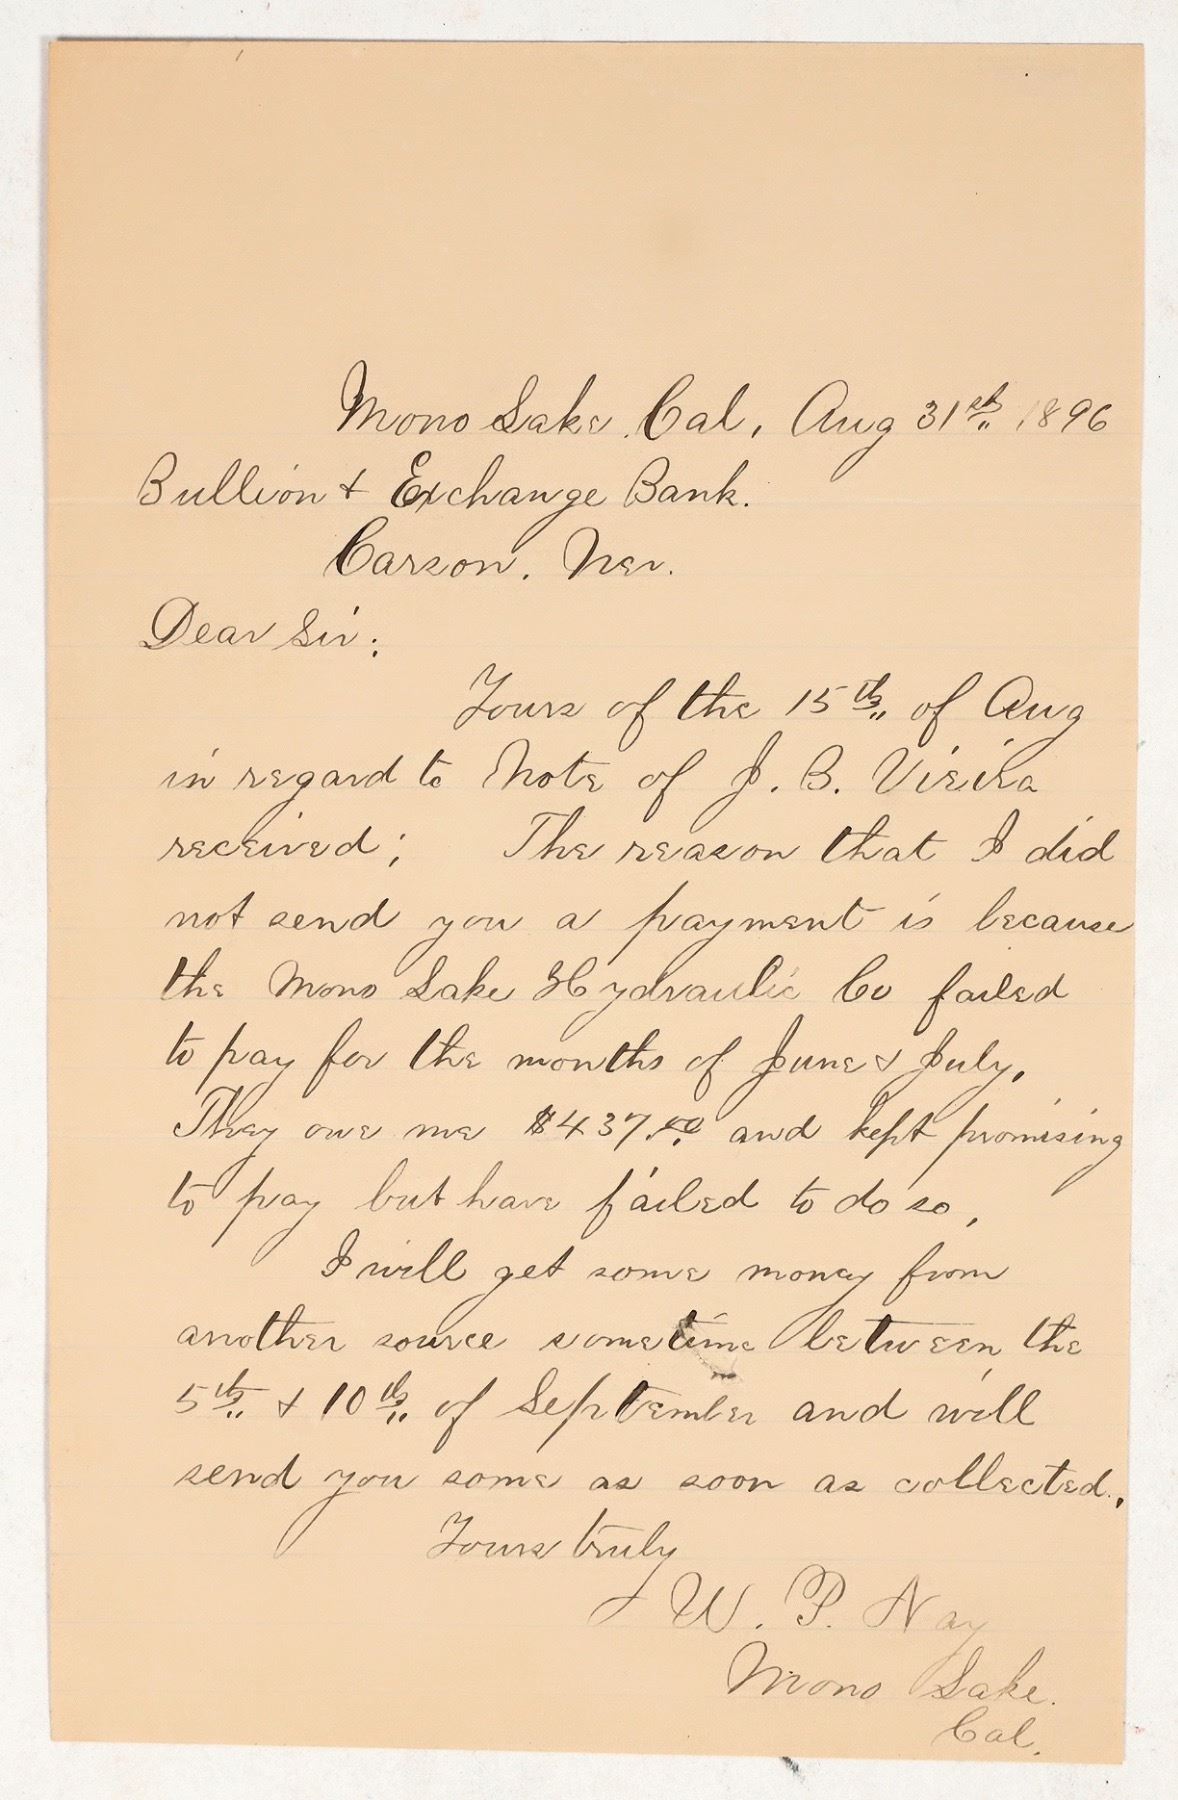 Mono Lake Cal, Aug 31st 1896
Bullion & Exchange Bank.
Carson. Nev.
Dear Sir:
Yours of the 15th of Aug
in regard to Note of J. B. Vieira
received; The reason that I did
not send you a payment is because
the Mono Lake Hydraulic Co failed
to pay for the months of June & July,
They owe me $437.00 and kept promising
to pay but have failed to do so,
I will get some money from
another source sometime between the
5th & 10th of September and will
send you some as soon as collected,
Yours truly
W. P. Nay
Mono Lake.
Cal.